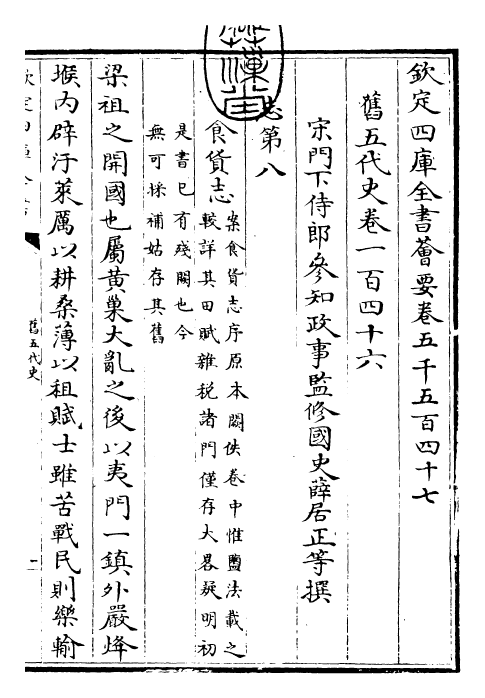 欽定四庫全書薈要卷五千五百四十七
舊五代史卷一百四十六
宋門下侍郎參知政事監修國史薛居正等撰
志第八
食貨志
案食貨志序原本闕佚卷中惟鹽法載之
較詳其田賦雜稅諸門僅存大畧疑明初
是書已有殘闕也今
無可採補姑存其舊
梁祖之開國也屬黃巢大亂之後以夷門一鎮外嚴烽
堠内辟汙萊厲以耕桑薄以租賦士雖苦戰民則樂輸
舊五代史